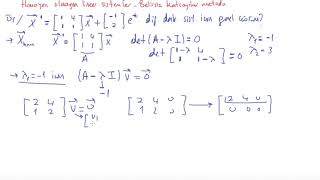 Homojen olmayan lineer sistemler - Belirsiz katsayılar metodu
B/ X' = [1 4 1 1] X + [-1 2] e^t dif. denk. sist. nin genel çözümü?
→ X_hom X' = [1 4 1 1] X det(A-λI)=0 λ₁=-1
A det[1-λ 4 1 1-λ]=0 λ₂=3
→ λ₁=-1 için (A-λI)V=0
-1
[2 4 1 2] V=0 [2 4 0 1 2 0] → [2 4 0 0 0 0]
[V₁